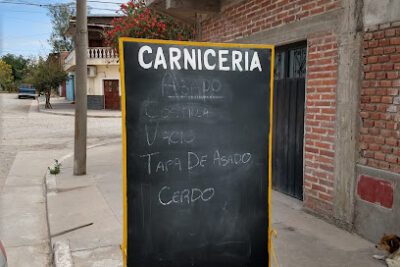 CARNICERIA
ASADO
COSTILLA
VACIO
TAPA DE ASADO
CERDO